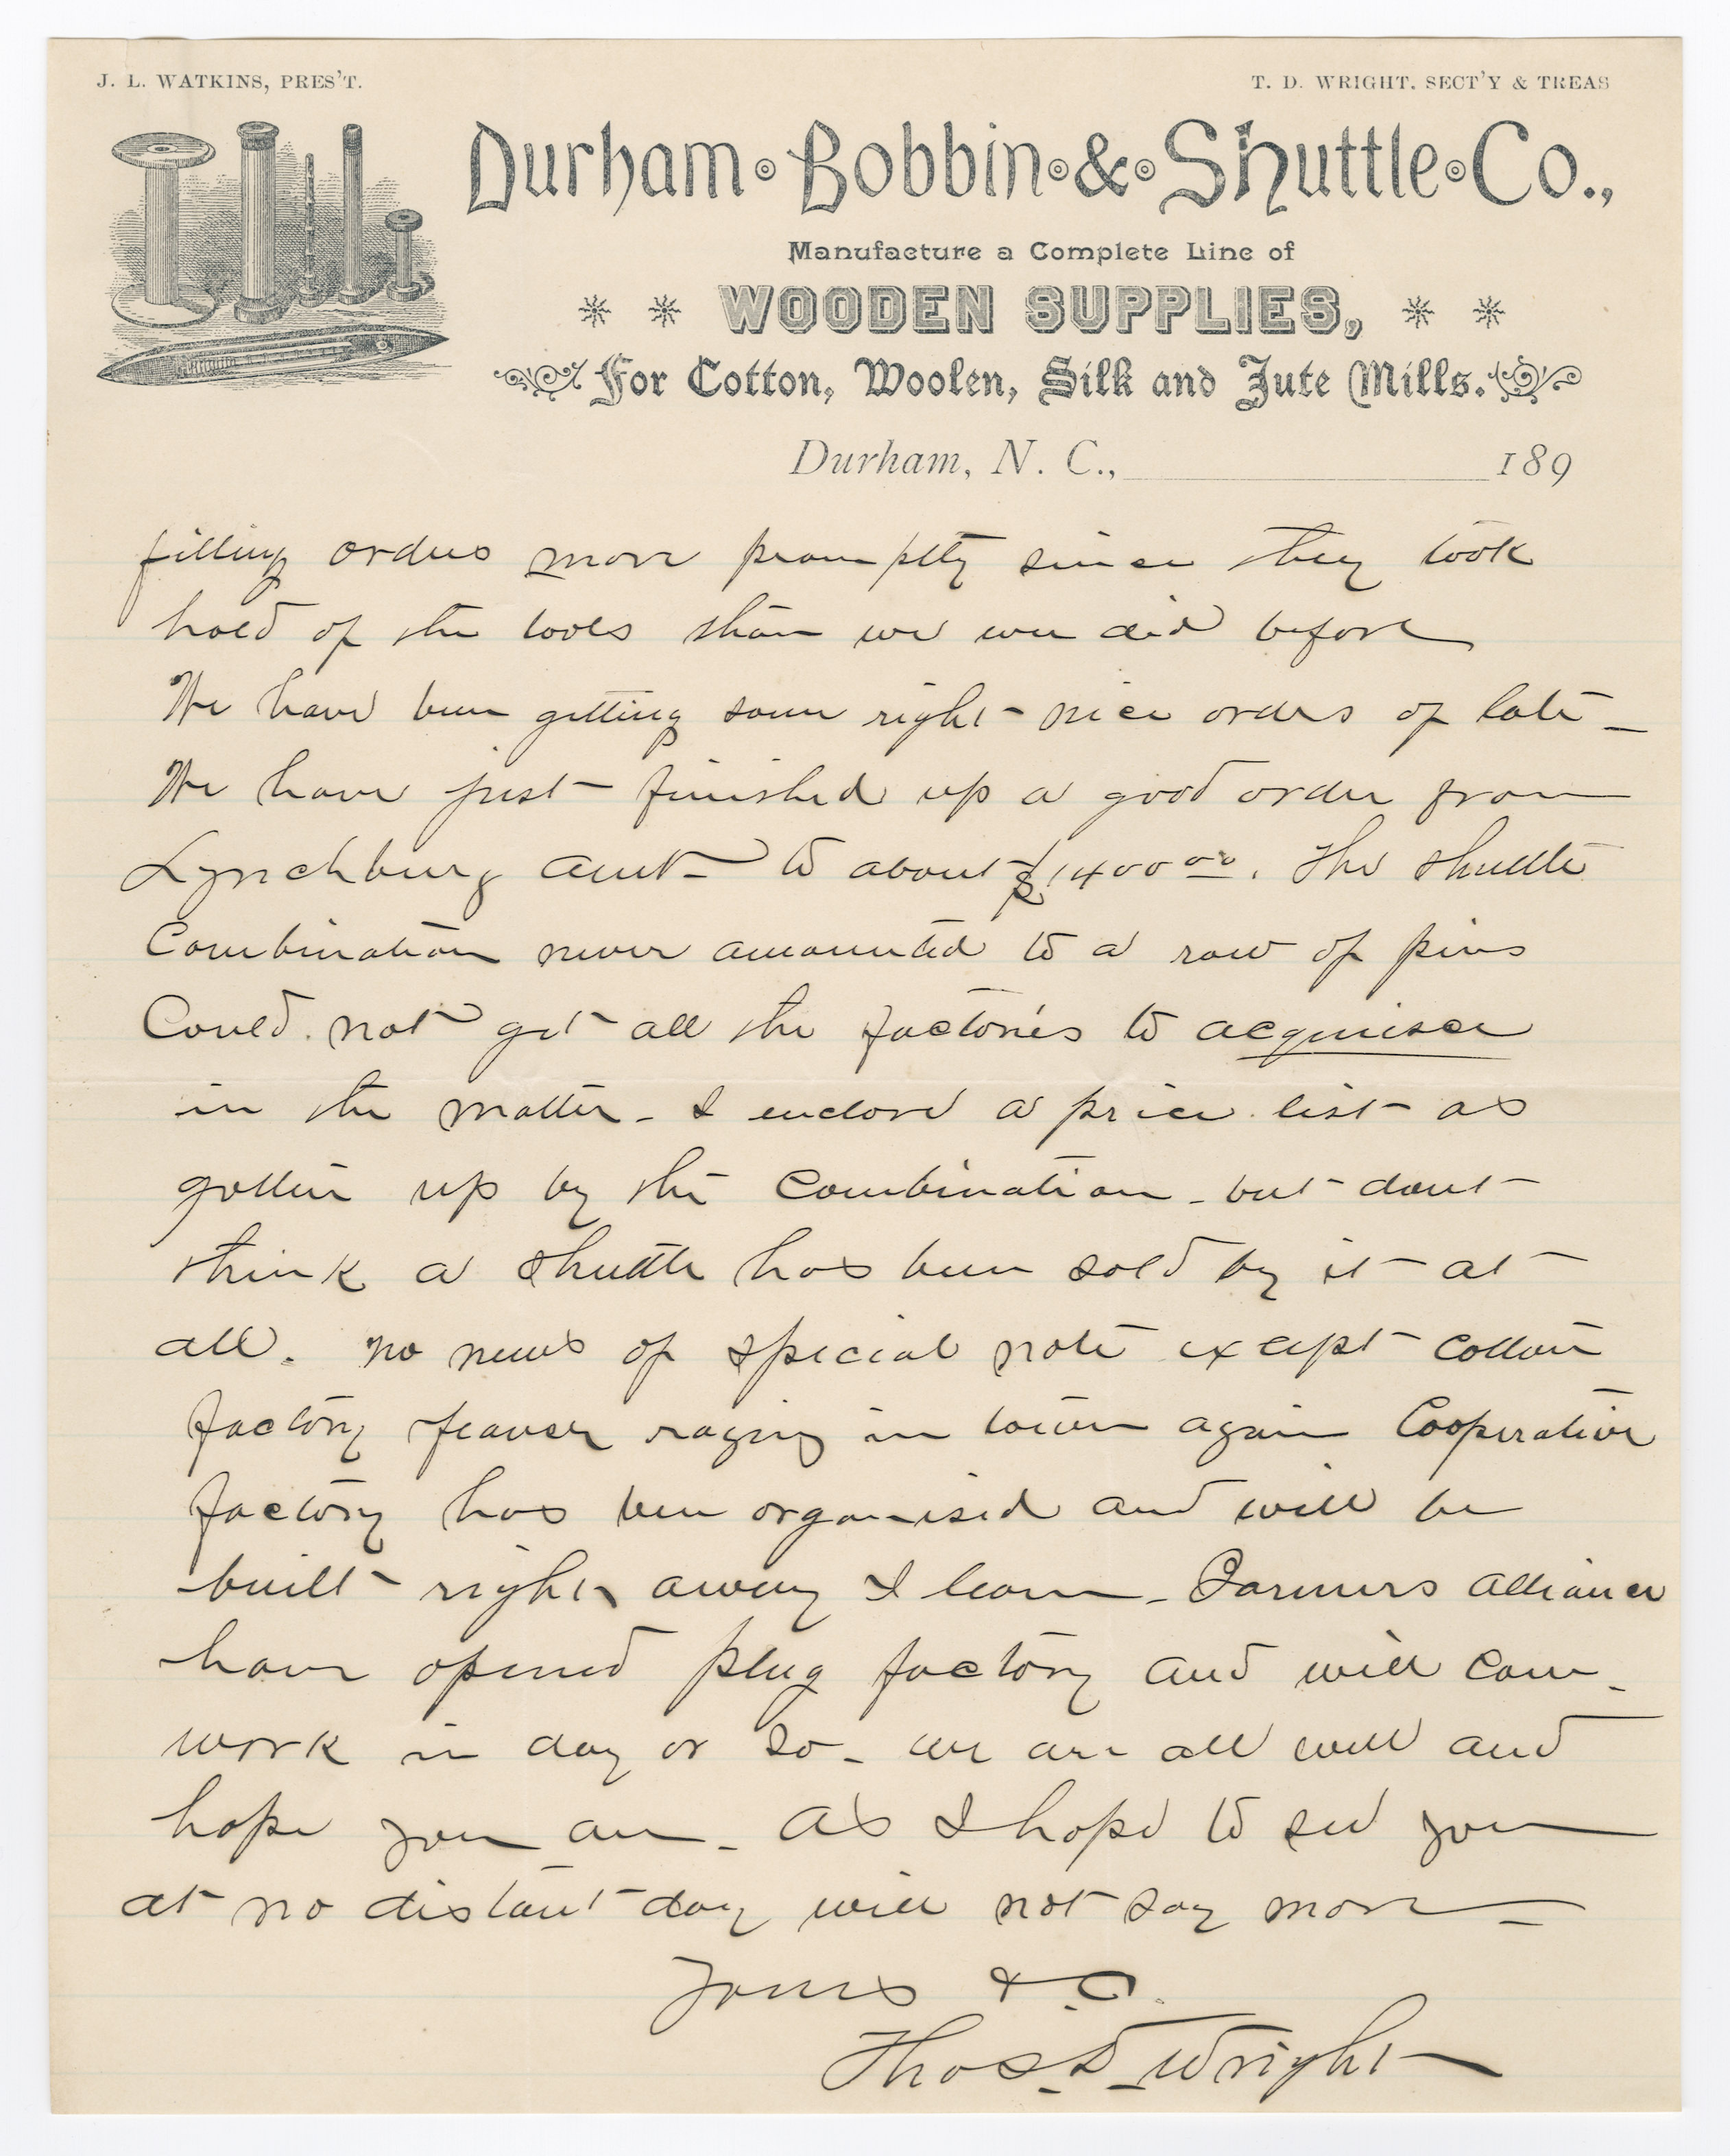 J. L. WATKINS, PRES'T.
T. D. WRIGHT. SECT'Y & TREAS
Durham Bobbin & Shuttle Co.,
Manufacture a Complete Line of
WOODEN SUPPLIES,
For Cotton, Woolen, Silk and Jute Mills.
Durham, N. C., 189
filling orders more promptly since they took
hold of the tools than we ever did before
We have been getting some right nice orders of late -
We have just finished up a good order from
Lynchburg amt to about $1400 00. The Shuttle
Combination never amounted to a row of pins
Could not get all the factories to acquiesce
in the matter - I enclose a price list as
gotten up by the Combination - but dont
think a shuttle has been sold by it at
all. No news of special note except Cotton
factory feaver raging in town again Cooperative
factory has been organised and will be
built right away I learn - Farmers alliance
have opened plug factory and will com-
work in day or so - we are all well and
hope you are - As I hope to see you
at no distant day will not say more -
Yours &.C.
Thos. D. Wright